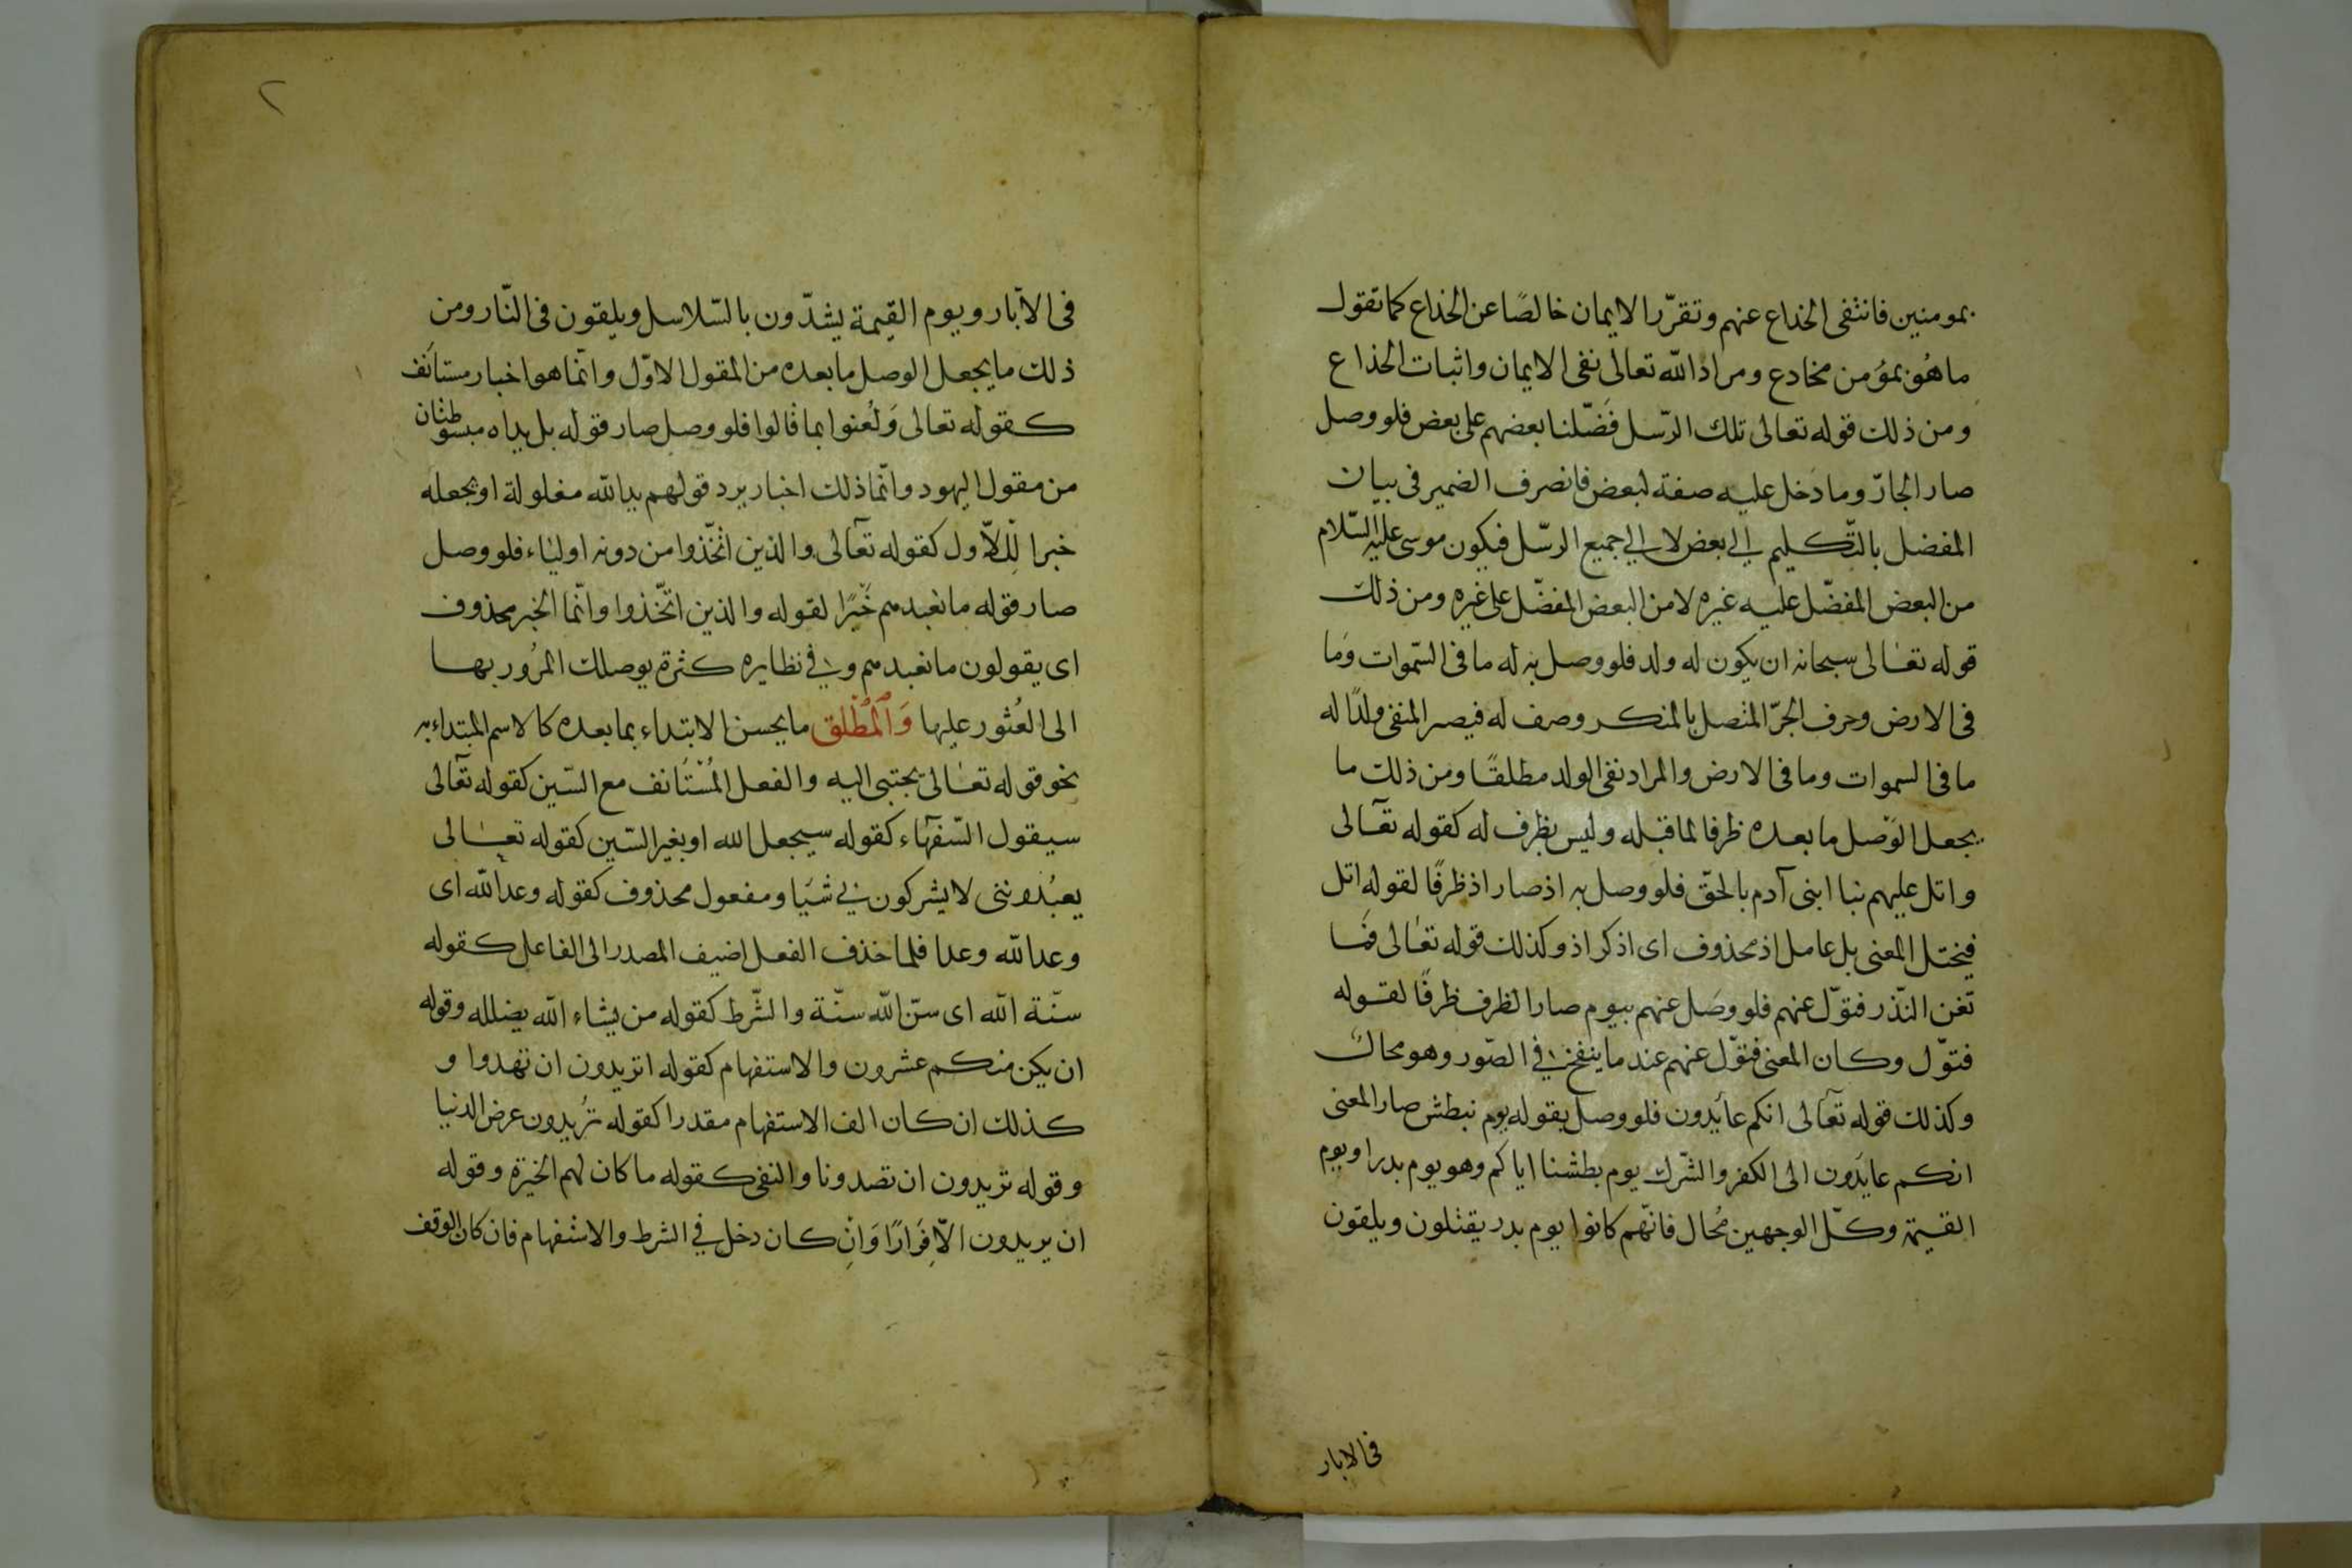 بمومنين فانتفى الخداع عنهم وتقرّر الايمان خالصًا عن الخداع كما تقول
ما هُو بمؤمن مخادع ومراد الله تعالى نفى الايمان واثبات الخداع
ومن ذلك قوله تعالى تلك الرّسل فَضّلنا بعضهم على بعض فلو وصل
صار الجارّ وما دَخل عليه صفة لبعض فانصرف الضمير فى بيان
المفضل بالتّكليم الى بعض لا الى جميع الرسّل فيكون موسى عليه السّلام
من البعض المفضّل عليه غيره لا من البعض المفضّل على غيره ومن ذلك
قوله تعالى سبحانه ان يكون له ولد فلو وصل به له ما فى السّموات وَما
فى الارض وحرف الجرّ المتصل بالمنكر وصف له فيصر المنفى ولدًا له
ما فى السموات وما فى الارض والمراد نفى الولد مطلقًا ومن ذلك ما
يجعل الوَصل ما بعده ظرفا لما قبله وليس بظرف له كقوله تعالى
واتل عليهم نبا ابنى آدم بالحقّ فلو وصل به اذ صار اذ ظرفًا لقوله اتل
فيختل المعنى بل عامل اذ محذوف اى اذكر اذ وكذلك قوله تعالى فَمَا
تغن النّذر فتوّل عنهم فلو وصَل عنهم بيوم صار الظرف ظرفًا لقوله
فتوّل وكان المعنى فتوّل عنهم عند ما ينفخ فى الصّور وهو محال
وكذلك قوله تعالى انكم عائدون فلو وصل بقوله يوم نبطش صار المعنى
انكم عايَدون الى الكفر والشّرك يوم بطشنا اياكم وهو يوم بدر او يوم
القيمة وكلّ الوجهين مُحال فانّهم كانوا يوم بدر يقتلون ويلقون
فى الابار
٢
فى الآبار ويوم القيمة يشدّون بالسّلاسل ويلقون فى النّار ومن
ذلك ما يجعل الوصل ما بعده من المقول الاوّل وانّما هو اخبار مستانَف
كقوله تعالى وَلُعنوا بما قالوا فلو وصل صار قوله بل يداه مبسوطتان
من مقول اليهود وانّما ذلك اخبار يرد قولهم يد الله مغلولة او يجعله
خبرا للاّول كقوله تعالى والذين اتّخذوا من دونه اولياء فلو وصل
صار قوله ما نعبدهم خَبَرًا لقوله والذين اتّخذوا وانّما الخبر محذوف
اى يقولون ما نعبدهم وفى نظايره كثرة يوصلك المرُور بها
الى العُثور عليها وَالْمُطْلَق ما يحسن الابتداء بما بعده كالاسم المبتداء به
نحو قوله تعالى يجتبى اليه والفعل المُسْتَانف مع السّين كقوله تعالى
سيقول السّفهاء كقوله سيجعل الله او بغير السّين كقوله تعالى
يعبُدوننى لا يشركون بى شَيَا ومفعول محذوف كقوله وعد الله اى
وعد الله وعدا فلما حذف الفعل اضيف المصدر الى الفاعل كقوله
سنّة الله اى سنّ الله سنّة والشّرط كقوله من يشاء الله يضلله وقوله
ان يكن منكم عشرون والاستفهام كقوله اتريدون ان تهدوا و
كذلك ان كان الف الاستفهام مقدرا كقوله تُريدون عرض الدنيا
وقوله تريدون ان تصدونا والنفى كقوله ما كان لهم الخيرة وقوله
ان يريدون الّا فَرَارًا وَانِ كان دخل فى الشرط والاستفهام فان كان الوقف